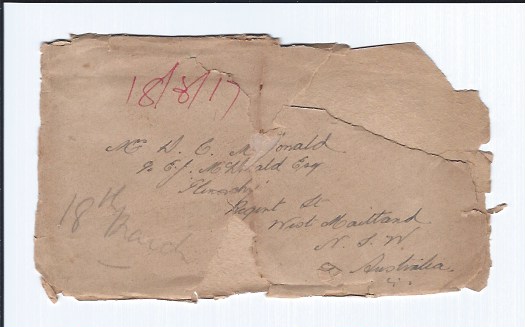 18/3/17
Mr D. C. McDonald
c/o E. J. McDonald Esq
Regent St
West Maitland
N. S. W.
Australia
18th
March